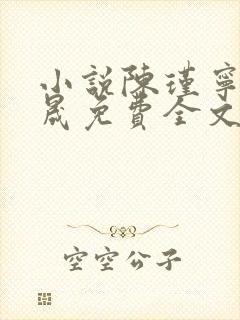 小説陳瑾寧
晟免費全文
空空公子